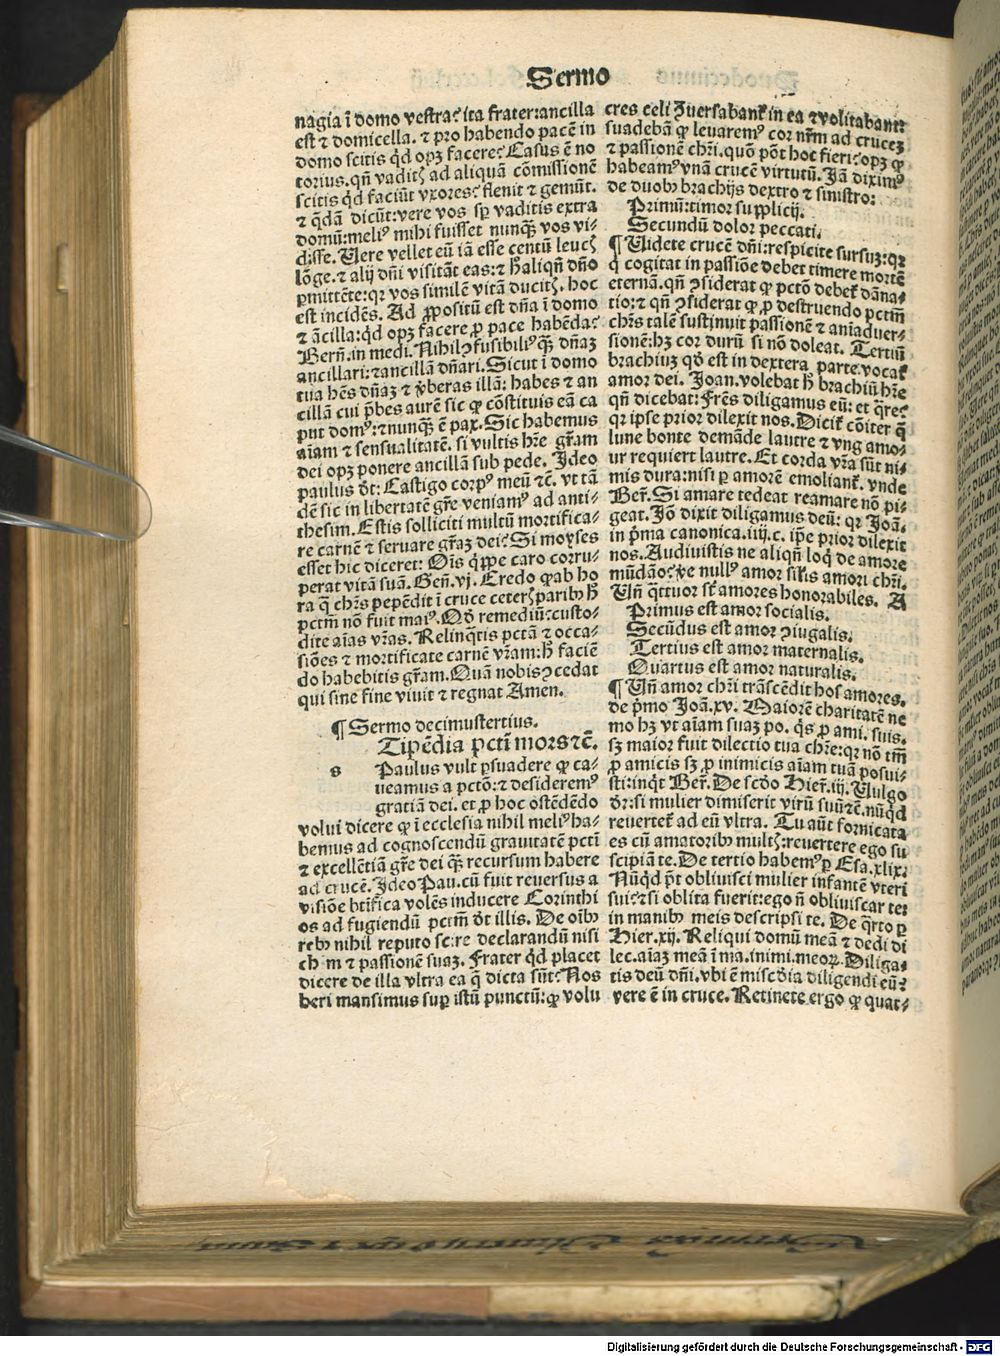 Sermo
nagia ī domo vestra? ita frater: ancilla
est ⁊ domicella. ⁊ pro habendo pacē in
domo scitis q̄d opꝫ facere? Casus ē no
torius. qn̄ vaditꝭ ad aliquā cōmissionē
scitis q̄d faciūt vxores? flenit ⁊ gemūt.
⁊ q̄dā dicūt: vere vos sꝑ vaditis extra
domū: meliꝰ mihi fuisset nunqꝫ vos vi-
disse. Vere vellet eū iā esse centū leucꝭ
lōge. ⁊ alij dn̄i visitāt eas: ⁊ h̄ aliqn̄ dn̄o
ꝑmittēte: qꝛ vos similē vitā ducitꝭ. hoc
est incidēs. Ad ꝓpositū est dn̄a ī domo
⁊ ācilla: q̄d opꝫ facere ꝓ pace habēda?
Bern̄. in medi. Nihil ꝯfusibiliꝰ qꝫ dn̄aꝫ
ancillari: ⁊ ancillā dn̄ari. Sicut ī domo
tua hn̄s dn̄aꝫ ⁊ ꝟberas illā: habes ⁊ an
cillā cui p̄bes aurē sic ꝙ cōstituis eā ca
put domꝰ: ⁊ nunqꝫ ē pax. Sic habemus
aīam ⁊ sensualitatē. si vultis hr̄e gr̄am
dei opꝫ ponere ancillā sub pede. Ideo
paulus dt̄: Castigo corpꝰ meū ⁊c̄. vt tā
dē sic in libertatē gr̄e veniamꝰ ad anti-
thesim. Estis solliciti multū mortifica-
re carnē ⁊ seruare gr̄aꝫ dei? Si moyses
esset hic diceret: Oīs q̄ppe caro corru-
perat vitā suā. Gen̄. vj. Credo ꝙ ab ho
ra q̄ chr̄s pepēdit ī cruce ceterꝭ paribꝰ h̄
pctm̄ nō fuit maiꝰ. Qd̄ remediū: custo-
dite aīas vr̄as. Relinq̄tis pctā ⁊ occa-
siōes ⁊ mortificate carnē vr̄am: h̄ faciē
do habebitis gr̄am. Quā nobis ꝯcedat
qui sine fine viuit ⁊ regnat Amen.
¶ Sermo decimustertius.
Tipēdia pctī mors ⁊c̄.
s Paulus vult ꝑsuadere ꝙ ca-
ueamus a pctō: ⁊ desideremꝰ
gratiā dei. et ꝓ hoc ostēdēdo
volui dicere ꝙ ī ecclesia nihil meliꝰ ha-
bemus ad cognoscendū grauitatē pctī
⁊ excellētiā gr̄e dei qꝫ recursum habere
ad crucē. Ideo Pau. cū fuit reuersus a
visiōe btīfica volēs inducere Corinthi
os ad fugiendū pctm̄ dt̄ illis. De oībꝰ
rebꝰ nihil reputo scire declarandū nisi
chr̄m ⁊ passionē suaꝫ. Frater q̄d placet
dicere de illa vltra ea q̄ dicta sūt? Nos
heri mansimus suꝑ istū punctū: ꝙ volu
cres celi ꝯuersabant̄ in ea ⁊ volitabant:
suadebā ꝙ leuaremꝰ cor nr̄m ad cruceꝫ
⁊ passionē chr̄i. quō pōt hoc fieri? opꝫ ꝙ
habeamꝰ vnā crucē virtutū. Iā diximꝰ
de duobꝰ brachijs dextro ⁊ sinistro:
Primū: timor supplicij.
Secundū dolor peccati.
¶ Videte crucē dn̄i: respicite sursuꝫ: qꝛ
q̄ cogitat in passiōe debet timere mortē
eternā. qn̄ ꝯsiderat ꝙ pctō debet̄ dāna-
tio: ⁊ qn̄ ꝯsiderat ꝙ ꝓ destruendo pctm̄
chr̄s talē sustinuit passionē ⁊ aīaduer-
sionē: hꝫ cor durū si nō doleat. Tertiū
brachiuꝫ qd̄ est in dextera parte vocat̄
amor dei. Joan. volebat h̄ brachiū hr̄e
qn̄ dicebat: Fr̄es diligamus eū: et q̄re?
qꝛ ipse prior dilexit nos. Dicit̄ cōiter q̄
lune bonte demāde lautre ⁊ vng amo-
ur requiert lautre. Et corda vr̄a sūt ni-
mis dura: nisi ꝑ amorē emoliant̄. vnde
Ber̄. Si amare tedeat reamare nō pi-
geat. Jō dixit diligamus deū: qꝛ Joā.
in p̄ma canonica. iiij. c. ip̄e prior dilexit
nos. Audiuistis ne aliqn̄ loq̄ de amore
mūdāo? ꝟe nullꝰ amor sīlis amori chr̄i.
Vn̄ q̄ttuor st̄ amores honorabiles. A
Primus est amor socialis.
Secūdus est amor ꝯiugalis.
Tertius est amor maternalis.
Quartus est amor naturalis.
¶ Vn̄ amor chr̄i trāscēdit hos amores.
de p̄mo Joā. xv. Maiorē charitatē ne
mo hꝫ vt aīam suaꝫ po. q̄s ꝓ ami. suis.
sꝫ maior fuit dilectio tua chr̄e: qꝛ nō tm̄
ꝓ amicis sꝫ ꝓ inimicis aīam tuā posui-
sti: inq̄t Ber̄. De scdo Hier̄. iij. Vulgo
dr̄: si mulier dimiserit virū suū ⁊c̄. nūq̄d
reuertet̄ ad eū vltra. Tu aūt fornicata
es cū amatoribꝰ multꝭ: reuertere ego su
scipiā te. De tertio habemꝰ ꝑ Esa. xlix.
Nūq̄d pt̄ obliuisci mulier infantē vteri
sui: ⁊ si oblita fuerit: ego n̄ obliuiscar te:
in manibꝰ meis descripsi te. De q̄rto ꝑ
Hier. xij. Reliqui domū meā ⁊ dedi di
lec. aīaꝫ meā ī ma. inimi. meoꝝ. Diliga-
tis deū dn̄i. vbi ē miscd̄ia diligendi eū?
vere ē in cruce. Retinete ergo ꝙ quat-
Digitalisierung gefördert durch die Deutsche Forschungsgemeinschaft - DFG